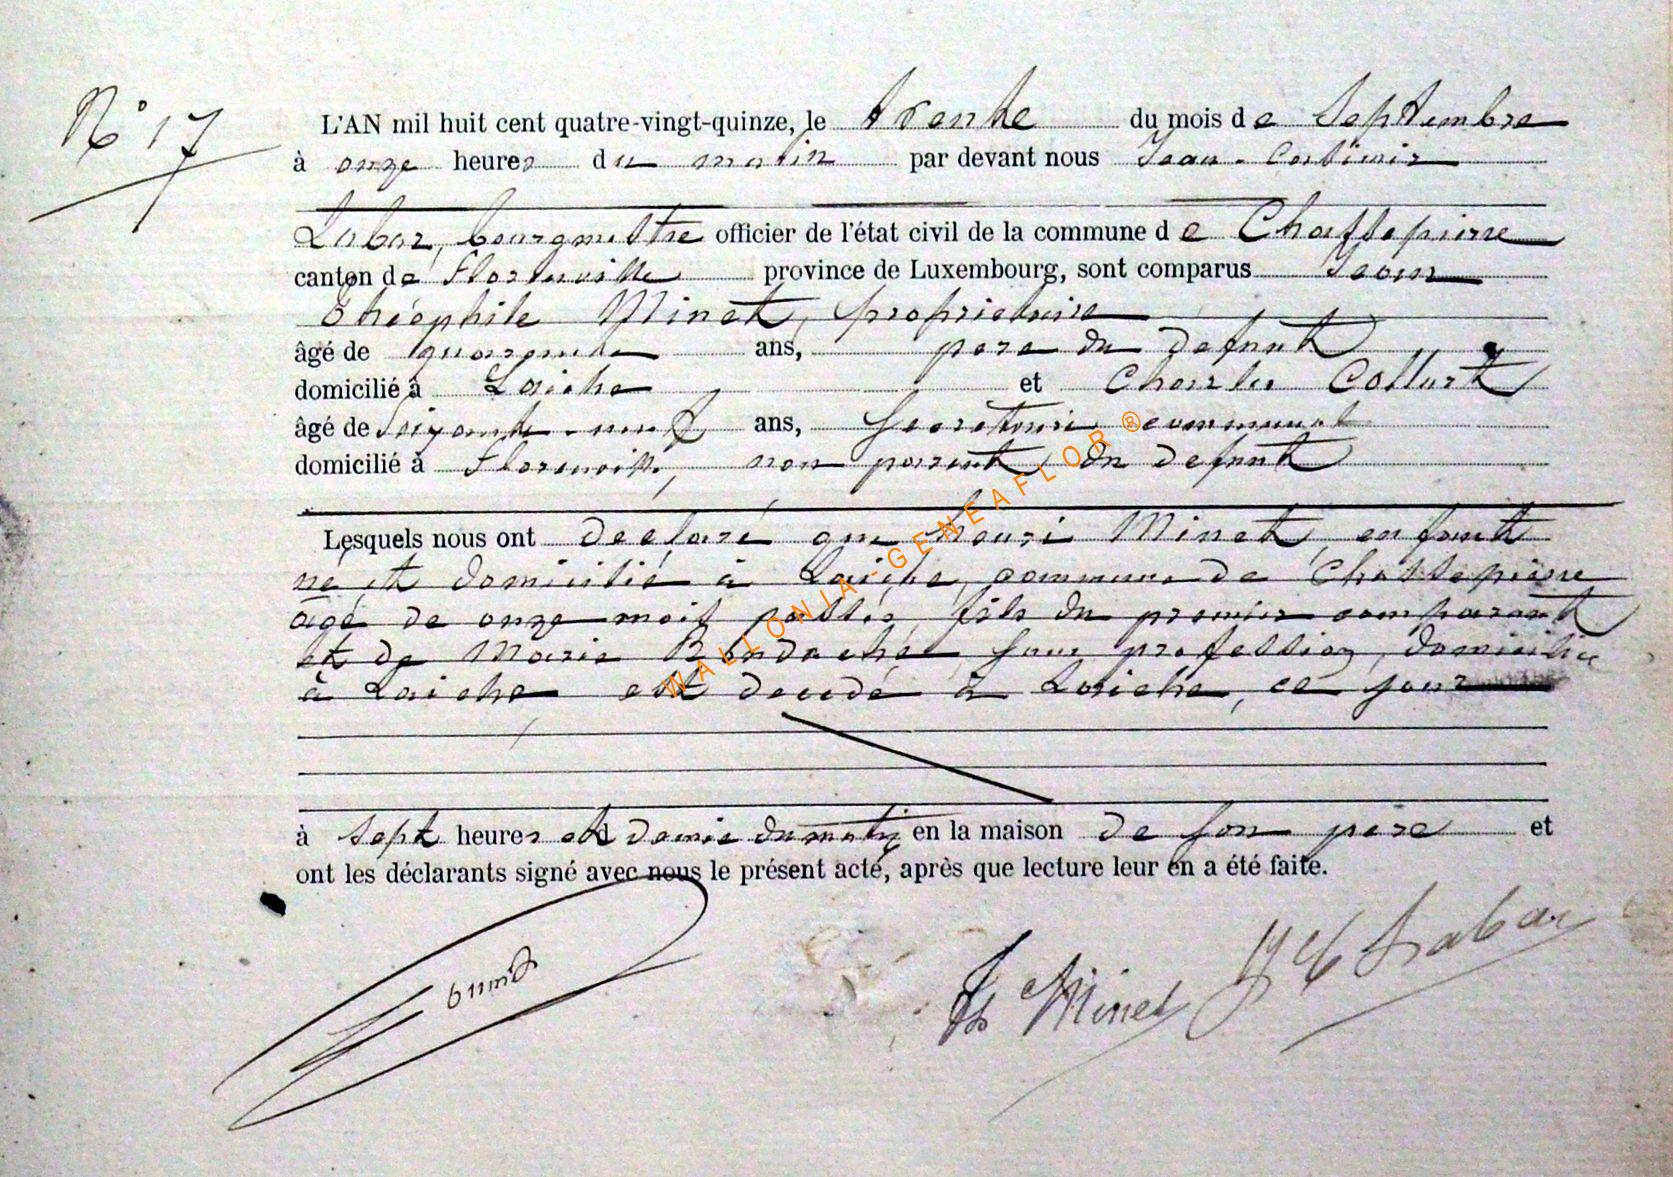 N° 17
L'AN mil huit cent quatre-vingt-quinze, le trente du mois de Septembre
à onze heures du matin par devant nous Jean-Casimir
Labar, bourgmestre officier de l'état civil de la commune de Chassepierre
canton de Florenville province de Luxembourg, sont comparus Jean
Théophile Minet, propriétaire
âgé de quarante ans, père du défunt
domicilié à Laiche et Charles Collart
âgé de Soixante-neuf ans, Secrétaire communal
domicilié à Florenville, non parent du défunt
Lesquels nous ont déclaré que Henri Minet, enfant
né et domicilié à Laiche, commune de Chassepierre
âgé de onze mois passés, fils du premier comparant
et de Marie sans profession, domiciliée
à Laiche est décédé à Laiche, ce jour
à sept heures et demie du matin en la maison de son père et
ont les déclarants signé avec nous le présent acte, après que lecture leur en a été faite.
Th Minet JC Labar
WALLONIA-GENEAFLOR ®